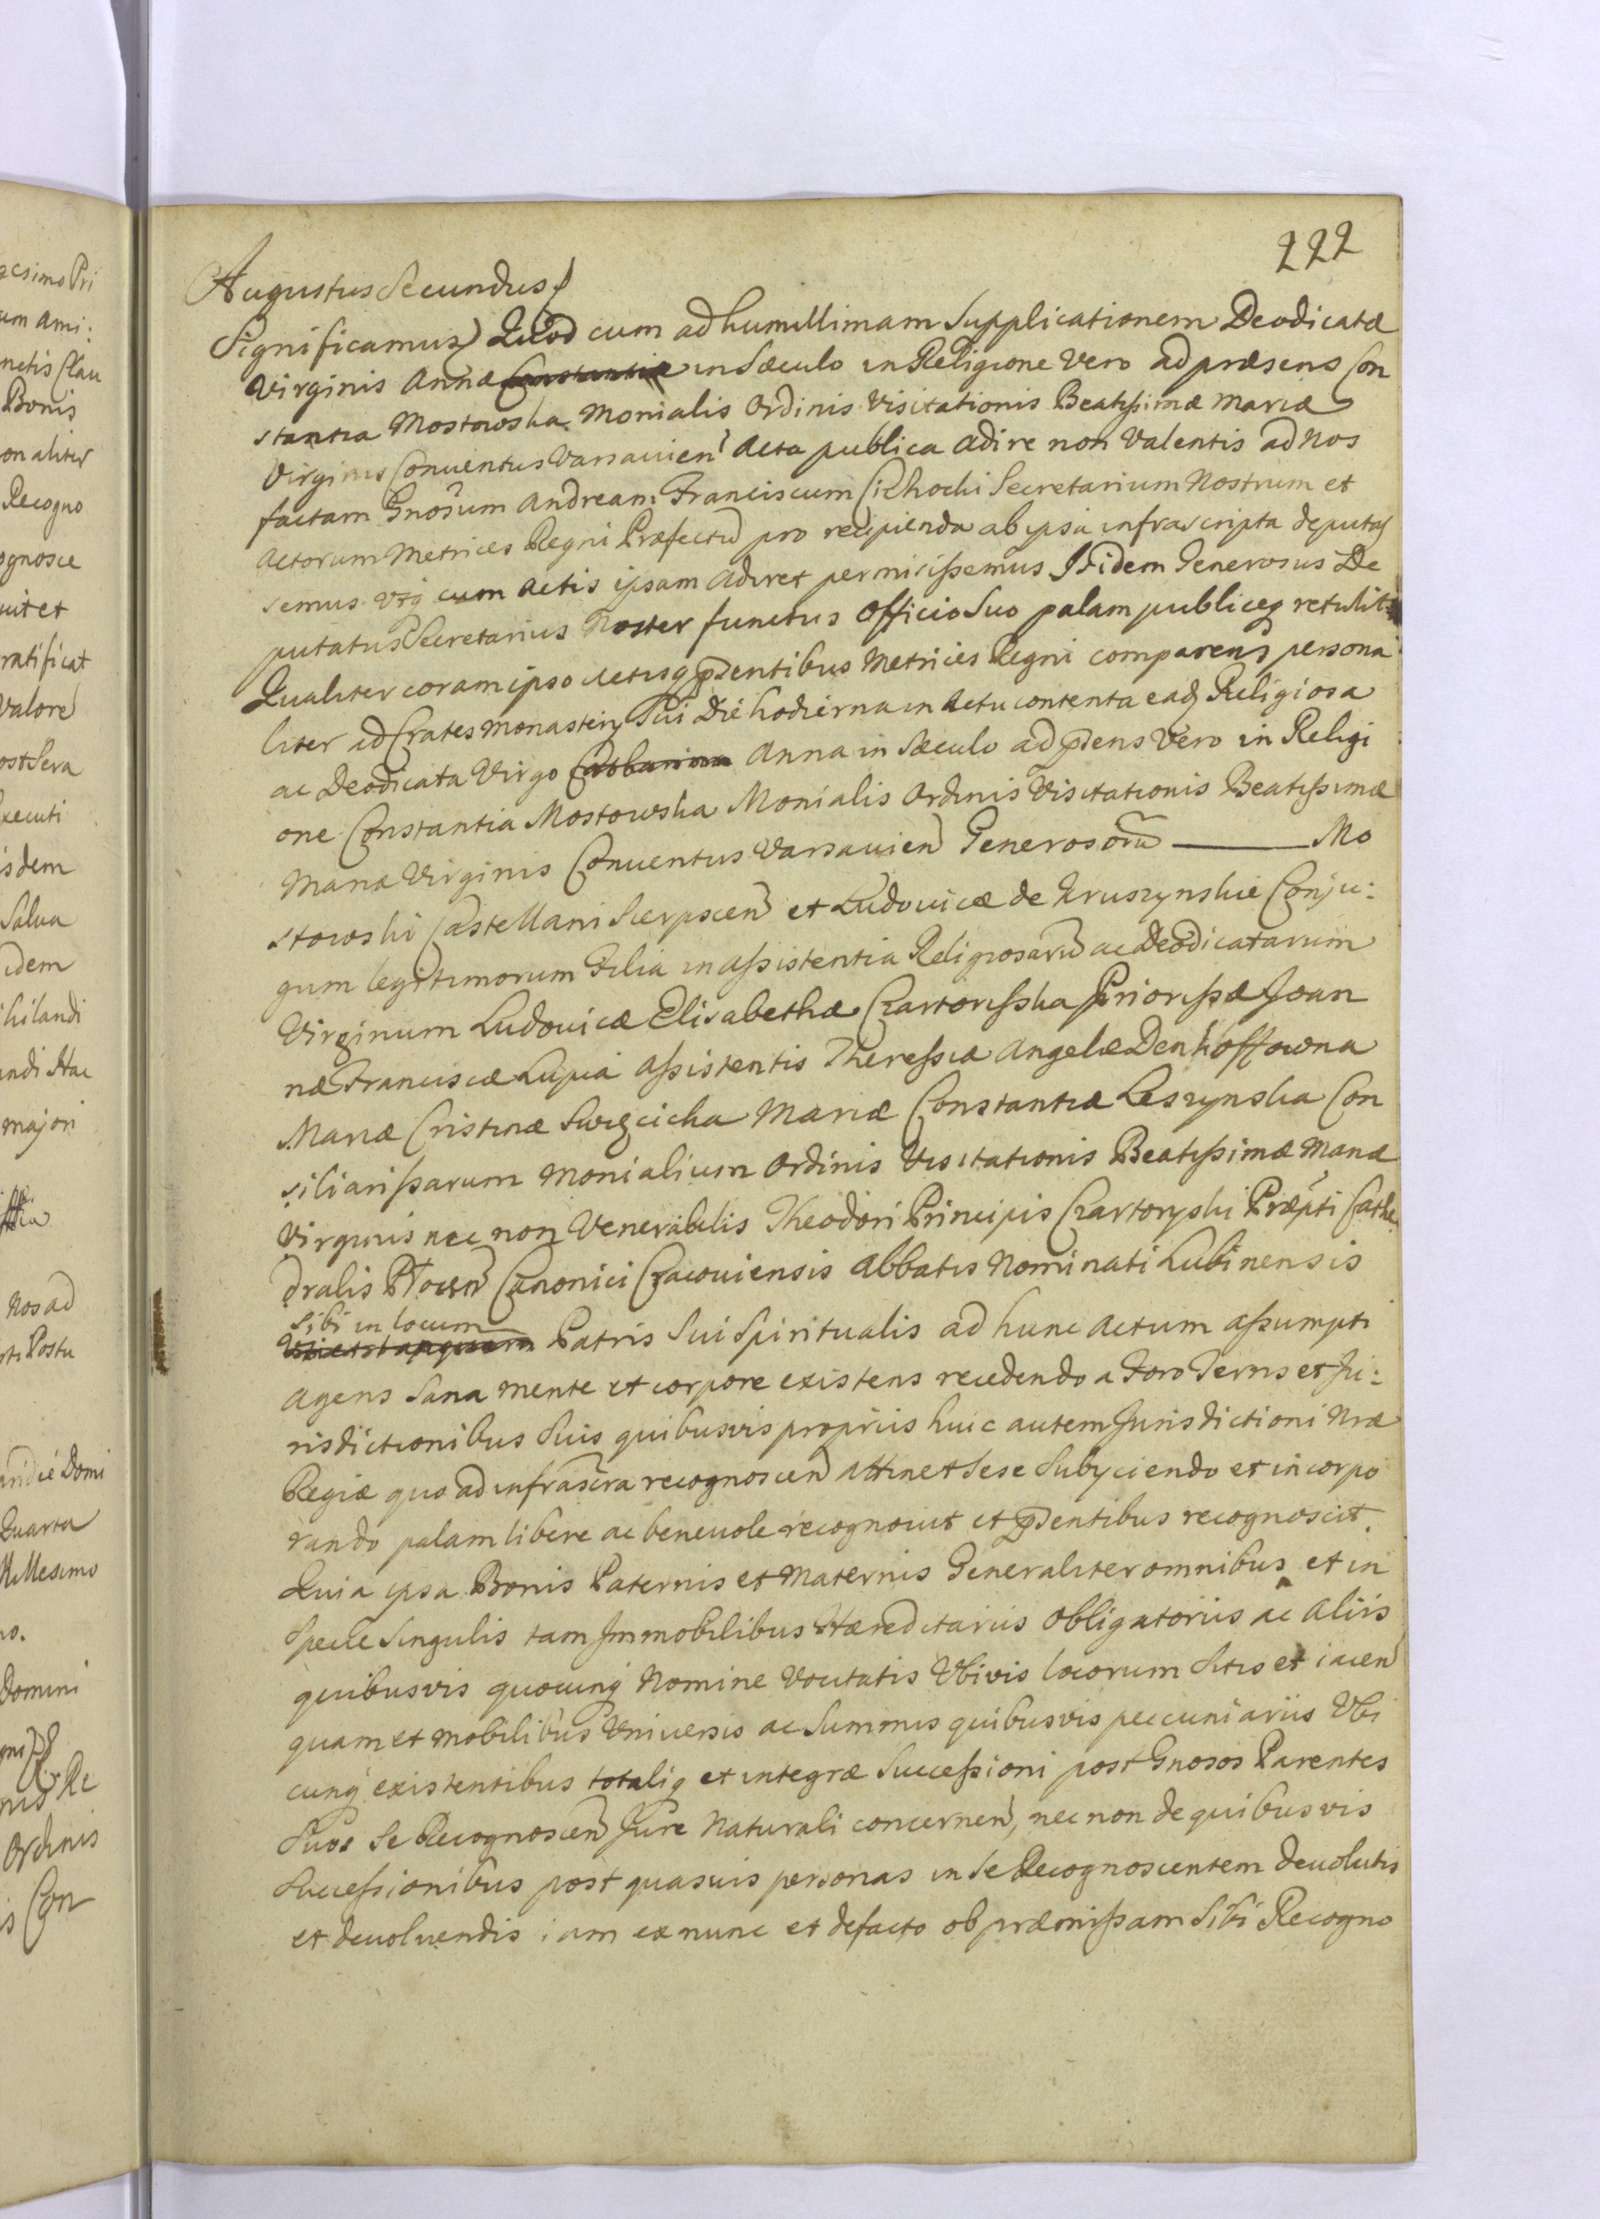 222
Augustus Secundus
Significamus Quod cum ad humillimam Supplicationem Deodicatæ
Virginis Annæ Constantiæ in Sæculo in Religione Vero ad præsens Con
stantia Mostowska Monialis Ordinis Visitationis Beatissimæ Mariæ
Virginis Conventus Varsavien Acta publica adire non Valentis ad Nos
factam Gnosum Andream Franciscum Cichocki Secretarium Nostrum et
Actorum Metrices Regni Præfectu pro recipienda ab ipsa infrascripta deputas
semus utq cum Actis ipsam adiret permisissemus Itidem Generosus De
putatus Secretarius Noster functus Officio Suo palam publiceq retulit
Qualiter coram ipso Actisq pntibus Metrices Regni comparens persona
liter ad Crates Monasterij Sui Die hodierna in Actu contenta ead Religiosa
ac Deodicata Virgo Catharina Anna in Sæculo ad pdens Vero in Religi
one Constantia Mostowska Monialis Ordinis Visitationis Beatissimæ
Mariæ Virginis Conventus Varsavien Generosorũ ——— Mo
stowski Castellani Sierpscen et Ludovicæ de Kruszynskie Conju:
gum legitimorum Filia in assistentia Religiosarũ ac Deodicatarum
Virginum Ludovicæ Elisabethæ Czartorisska Priorissæ Joan
næ Franciscæ Lupia Assistentis Theressiæ Angelæ Denhoffowna
Mariæ Cristinæ Swięcicka Mariæ Constantiæ Leszynska Con
siliarissarum Monialium Ordinis Visitationis Beatissimæ Mariæ
Virginis nec non Venerabilis Theodori Principis Czartoryski Præpti Cathe
dralis Plocen Canonici Cracoviensis Abbatis Nominati Lubinensis
Sibi in locum
Patris Sui Spiritualis ad hunc Actum assumpti
agens Sana mente et corpore existens recedendo a Foro Terris et Ju:
risdictionibus Suis quibusvis propriis huic autem Jurisdictioni Nræ
Regiæ quo ad infrascra recognoscen attinet sese Subijciendo et incorpo
rando palam libere ac benevole recognovit et pdentibus recognoscit.
Quia ipsa Bonis Paternis et Maternis Generaliter omnibus et in
Specie Singulis tam Immobilibus Hæreditariis Obligatoriis ac Aliis
quibusvis quocunq Nomine Vocitatis Ubivis locorum Sitis et iacen
quam et Mobilibus Universis ac Summis quibusvis peccuniariis Ubi
cunq existentibus totaliq et integræ Successioni post Gnosos Parentes
Suos Se Recognoscen Jure Naturali concernen, nec non de quibusvis
Successionibus post quasvis personas in Se Recognoscentem devolutis
et devolvendis iam ex nunc et defacto ob præmissam Sibi Recogno